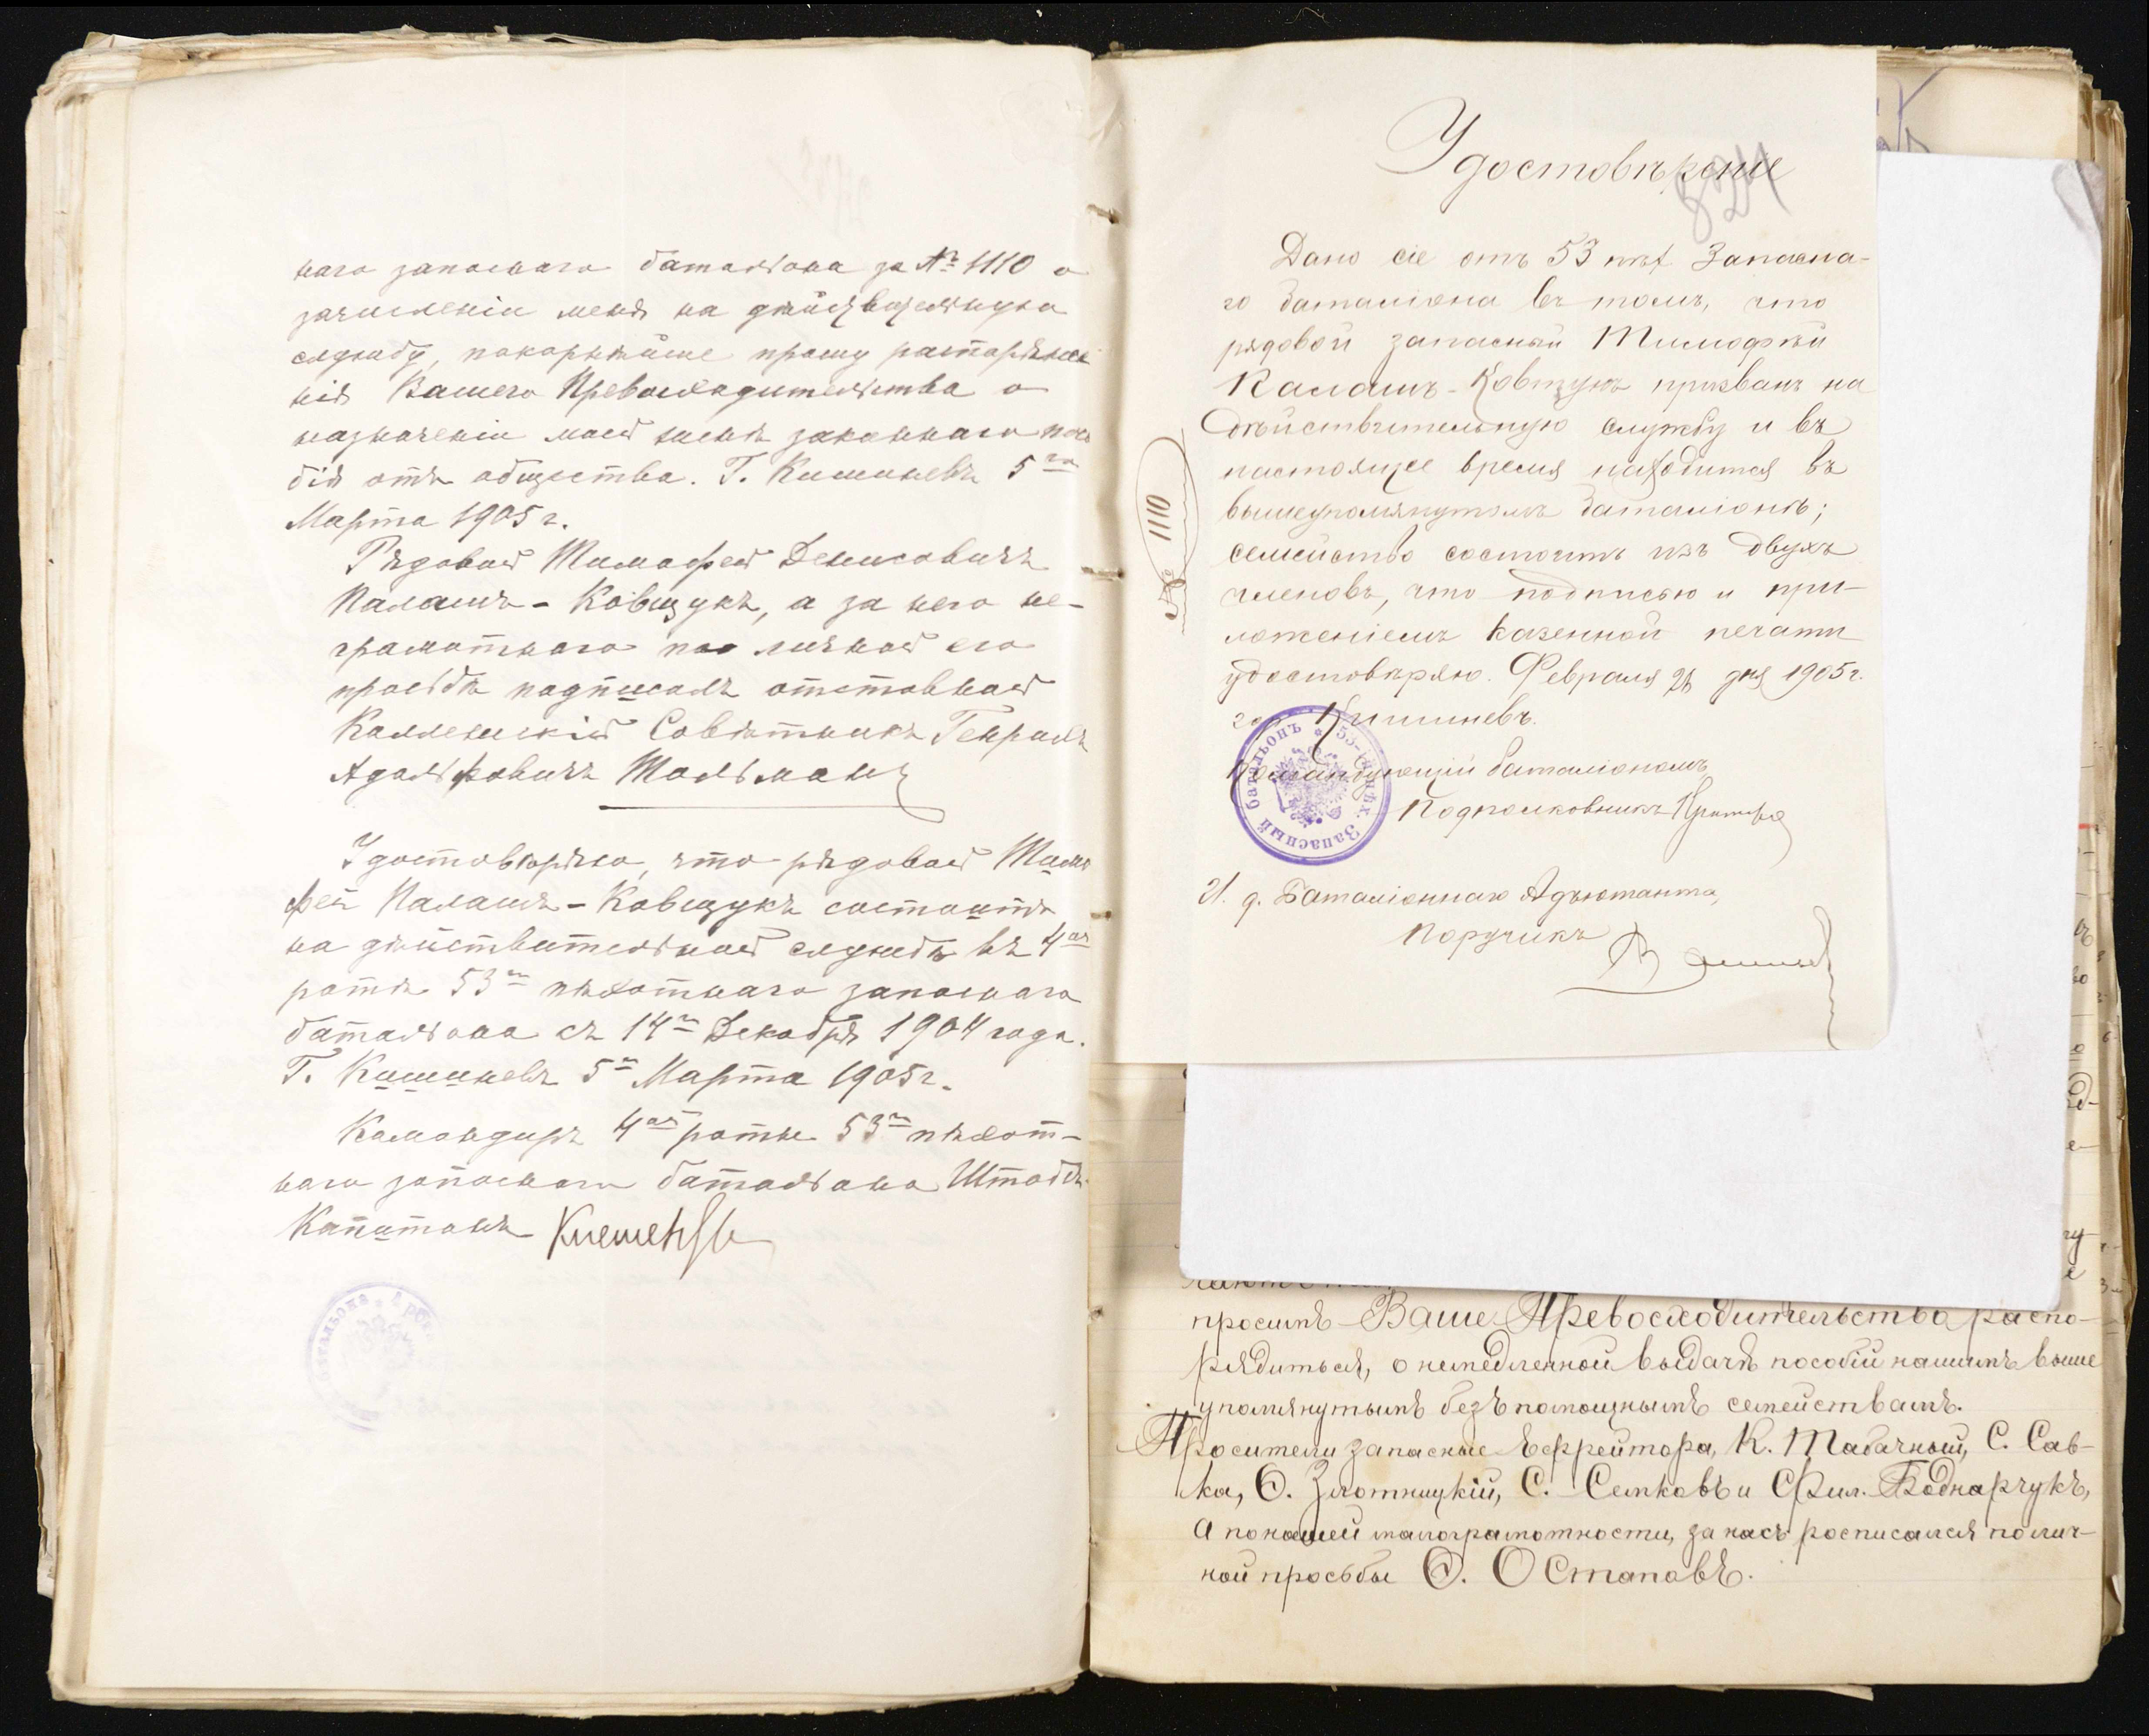 наго запаснаго баталіона за № 1110 о
зачисленіи меня на дѣйствительную
службу, покорнѣйше прошу распоряже
нія Вашего Превосходительства о
назначеніи моей законнаго посо
бія отъ общества. Г. Кишиневъ 5го
Марта 1905 г.
Рядовой Тимофей Денисовичъ
Палашъ-Ковщукъ, а за него не-
грамотнаго по личной его
просьбѣ подписалъ отставной
Коллежскій Совѣтникъ Генрихъ
Адольфовичъ
Удостовѣряю, что рядовой Тимо
фей Палашъ-Ковщукъ состоитъ
на дѣйствительной службѣ въ 4ой
ротѣ 53го пѣхотнаго запаснаго
баталіона съ 14го Декабря 1904 года.
Г. Кишиневъ 5го Марта 1905 г.
Командиръ 4ой роты 53го пѣхот-
наго запаснаго баталіона Штабсъ-
Капитанъ
Удостовѣреніе
Дано сіе отъ 53 пѣх Запасна-
го баталіона въ томъ, что
рядовой запасный Тимофѣй
Калашъ-Ковтукъ призванъ на
дѣйствительную службу и въ
настоящее время находится въ
вышеупомянутомъ баталіонѣ;
семейство состоитъ изъ двухъ
членовъ, что подписью и при-
ложеніемъ казенной печати
удостовѣряю. Февраля дня 1905 г.
гор Кишиневъ.
Командующій баталіономъ,
Подполковникъ
И. д. Баталіоннаго Адъютанта,
Поручикъ
№ 1110
53-й пѣх. Запасный батальонъ
просимъ Ваше Превосходительство распо-
рядиться, о немедленной выдачѣ пособій нашимъ выше
упомянутымъ безъпомощнымъ семействамъ.
Просители запасные Ефрейтора, К. Табачный, С. Сав-
ка, Ѳ. Злотницкій, С. Семковъ и Фил. Боднарчукъ,
а по нашей малограмотности, за насъ росписался по лич-
ной просьбы Ѳ. Остаповъ.